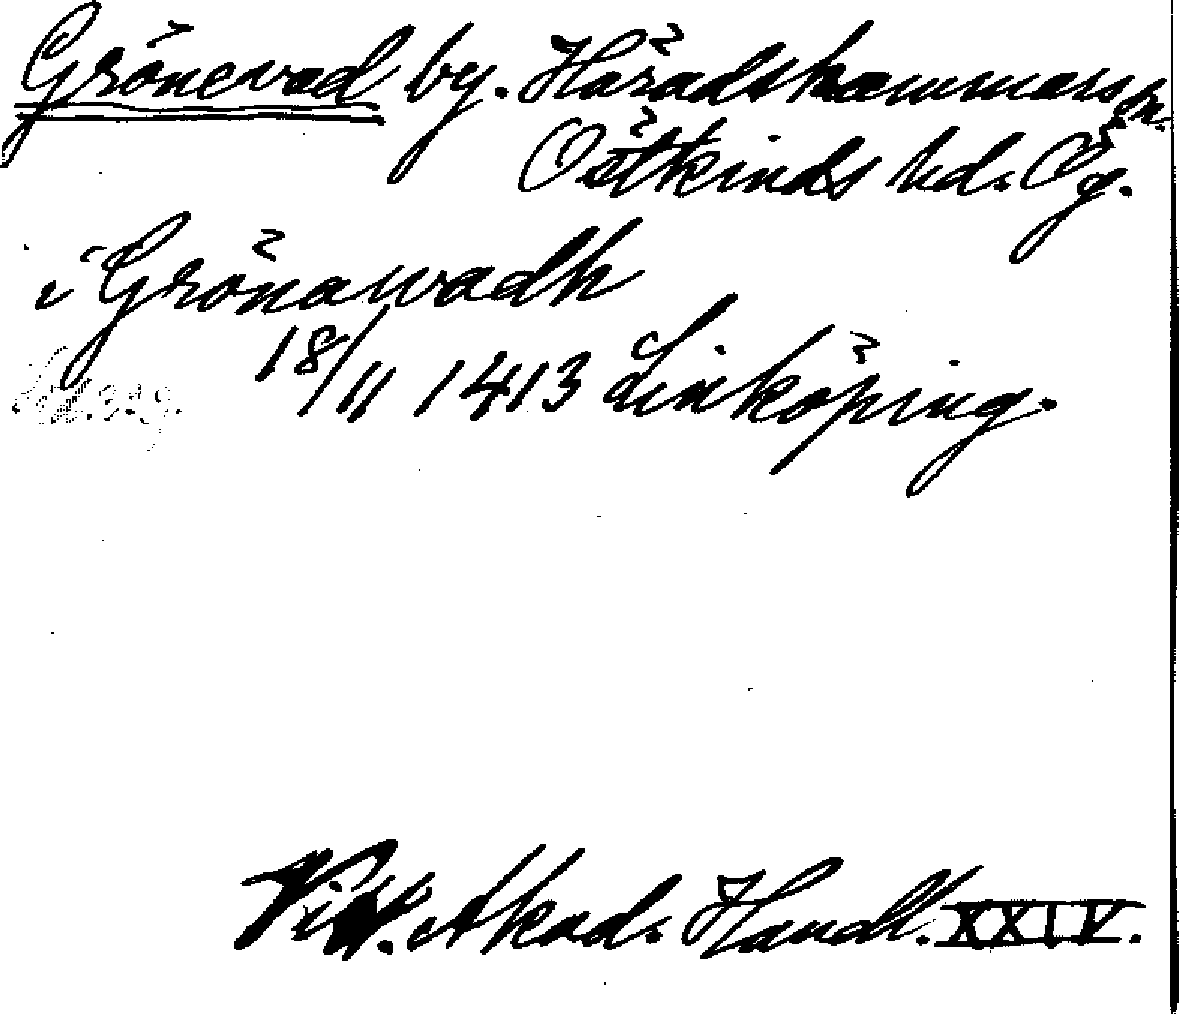 Grönevad by. Häradshammars sn.
Östkinds hd. Ög.
i Grönawadh
18/11 1413 Linköping.
Vitt. Akad. Handl. XXIV.